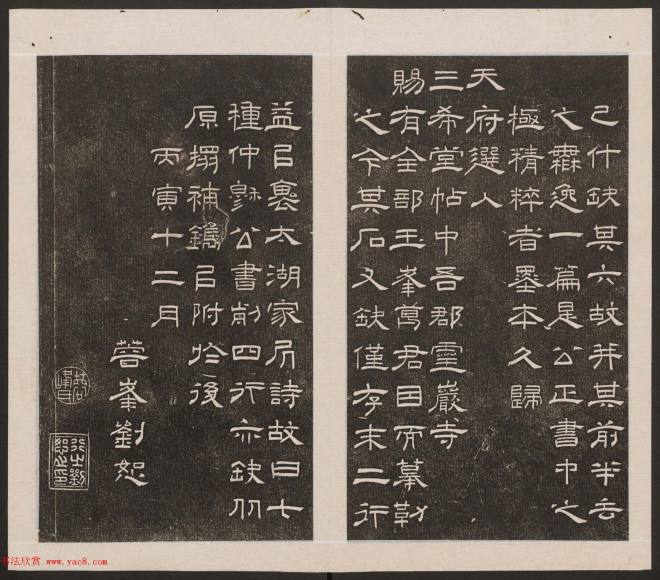 已什缺其六故并其前半去
之無逸一篇是公正書中之
極精粹者墨本久歸
天府選入
三希堂帖中吾郡靈巖寺
賜有全部玉峯萬君因而摹勒
之今其石又缺僅存末二行
益以太湖家居詩故曰七
種仲公書前四行亦缺仍
原搨補鐫以附於後
丙寅十二月
蓉峯劉恕
蓉峰
书法欣赏 www.yac8.com